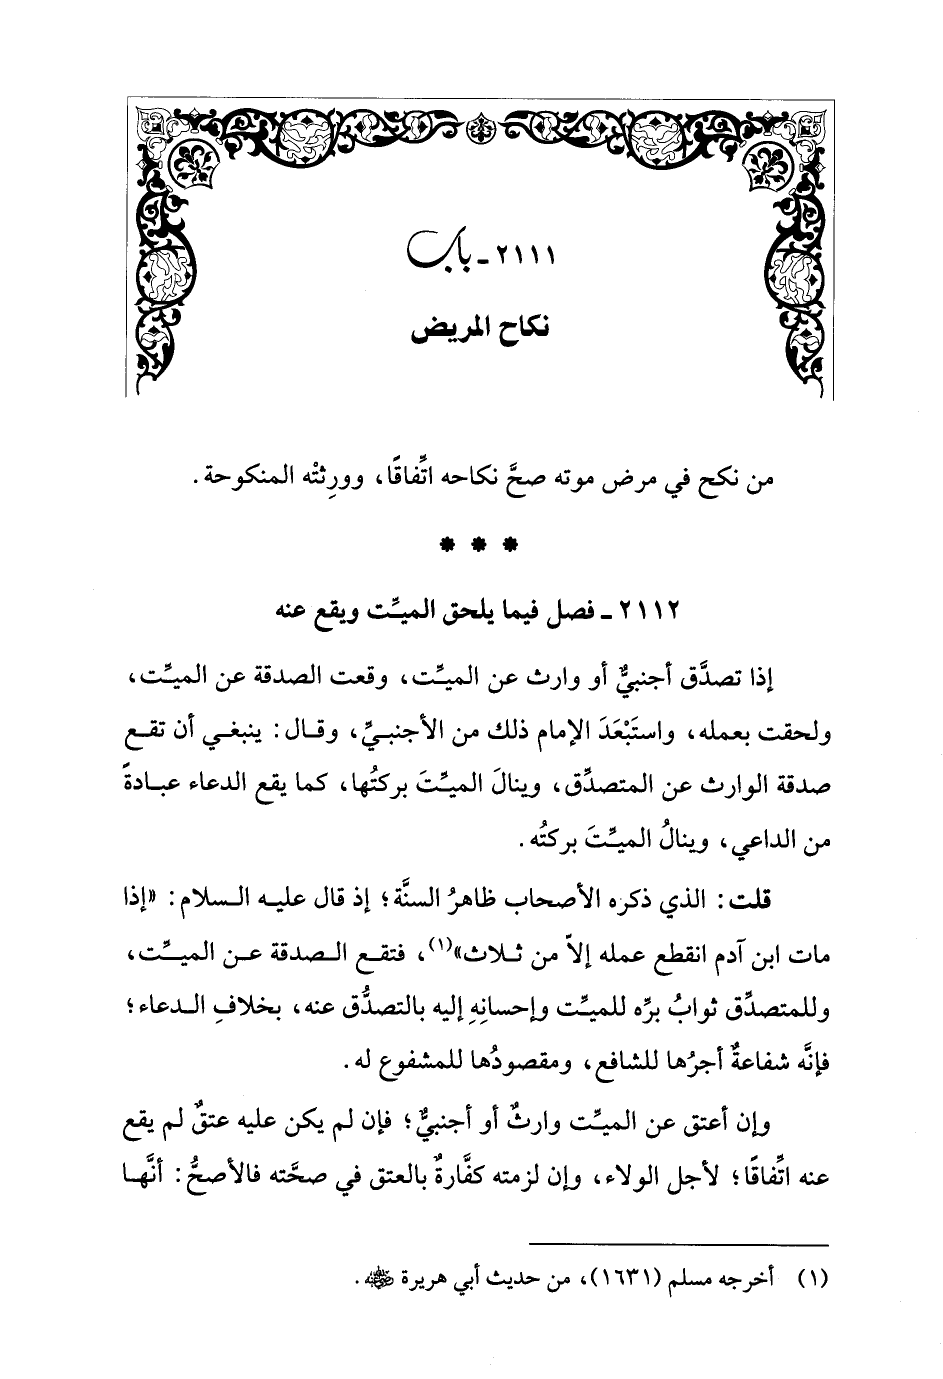 ٢١١١ - باب
نكاح المريض
من نكح في مرض موته صحَّ نكاحه اتِّفاقًا، وورِثتْه المنكوحة.
* * *
٢١١٢ - فصل فيما يلحق الميِّت ويقع عنه
إذا تصدَّق أجنبيٌّ أو وارث عن الميِّت، وقعت الصدقة عن الميِّت،
ولحقت بعمله، واستَبْعَدَ الإمام ذلك من الأجنبيِّ، وقال: ينبغي أن تقع
صدقة الوارث عن المتصدِّق، وينالَ الميِّتَ بركتُها، كما يقع الدعاء عبادةً
من الداعي، وينالُ الميِّتَ بركتُه.
قلت: الذي ذكره الأصحاب ظاهرُ السنَّة؛ إذ قال عليه السلام: «إذا
مات ابن آدم انقطع عمله إلاَّ من ثلاث»(١)، فتقع الصدقة عن الميِّت،
وللمتصدِّق ثوابُ برِّه للميِّت وإحسانِهِ إليه بالتصدُّق عنه، بخلافِ الدعاء؛
فإنَّه شفاعةٌ أجرُها للشافع، ومقصودُها للمشفوع له.
وإن أعتق عن الميِّت وارثٌ أو أجنبيٌّ؛ فإن لم يكن عليه عتقٌ لم يقع
عنه اتِّفاقًا؛ لأجل الولاء، وإن لزمته كفَّارةٌ بالعتق في صحَّته فالأصحُّ: أنَّها
(١) أخرجه مسلم (١٦٣١)، من حديث أبي هريرة ﵁.